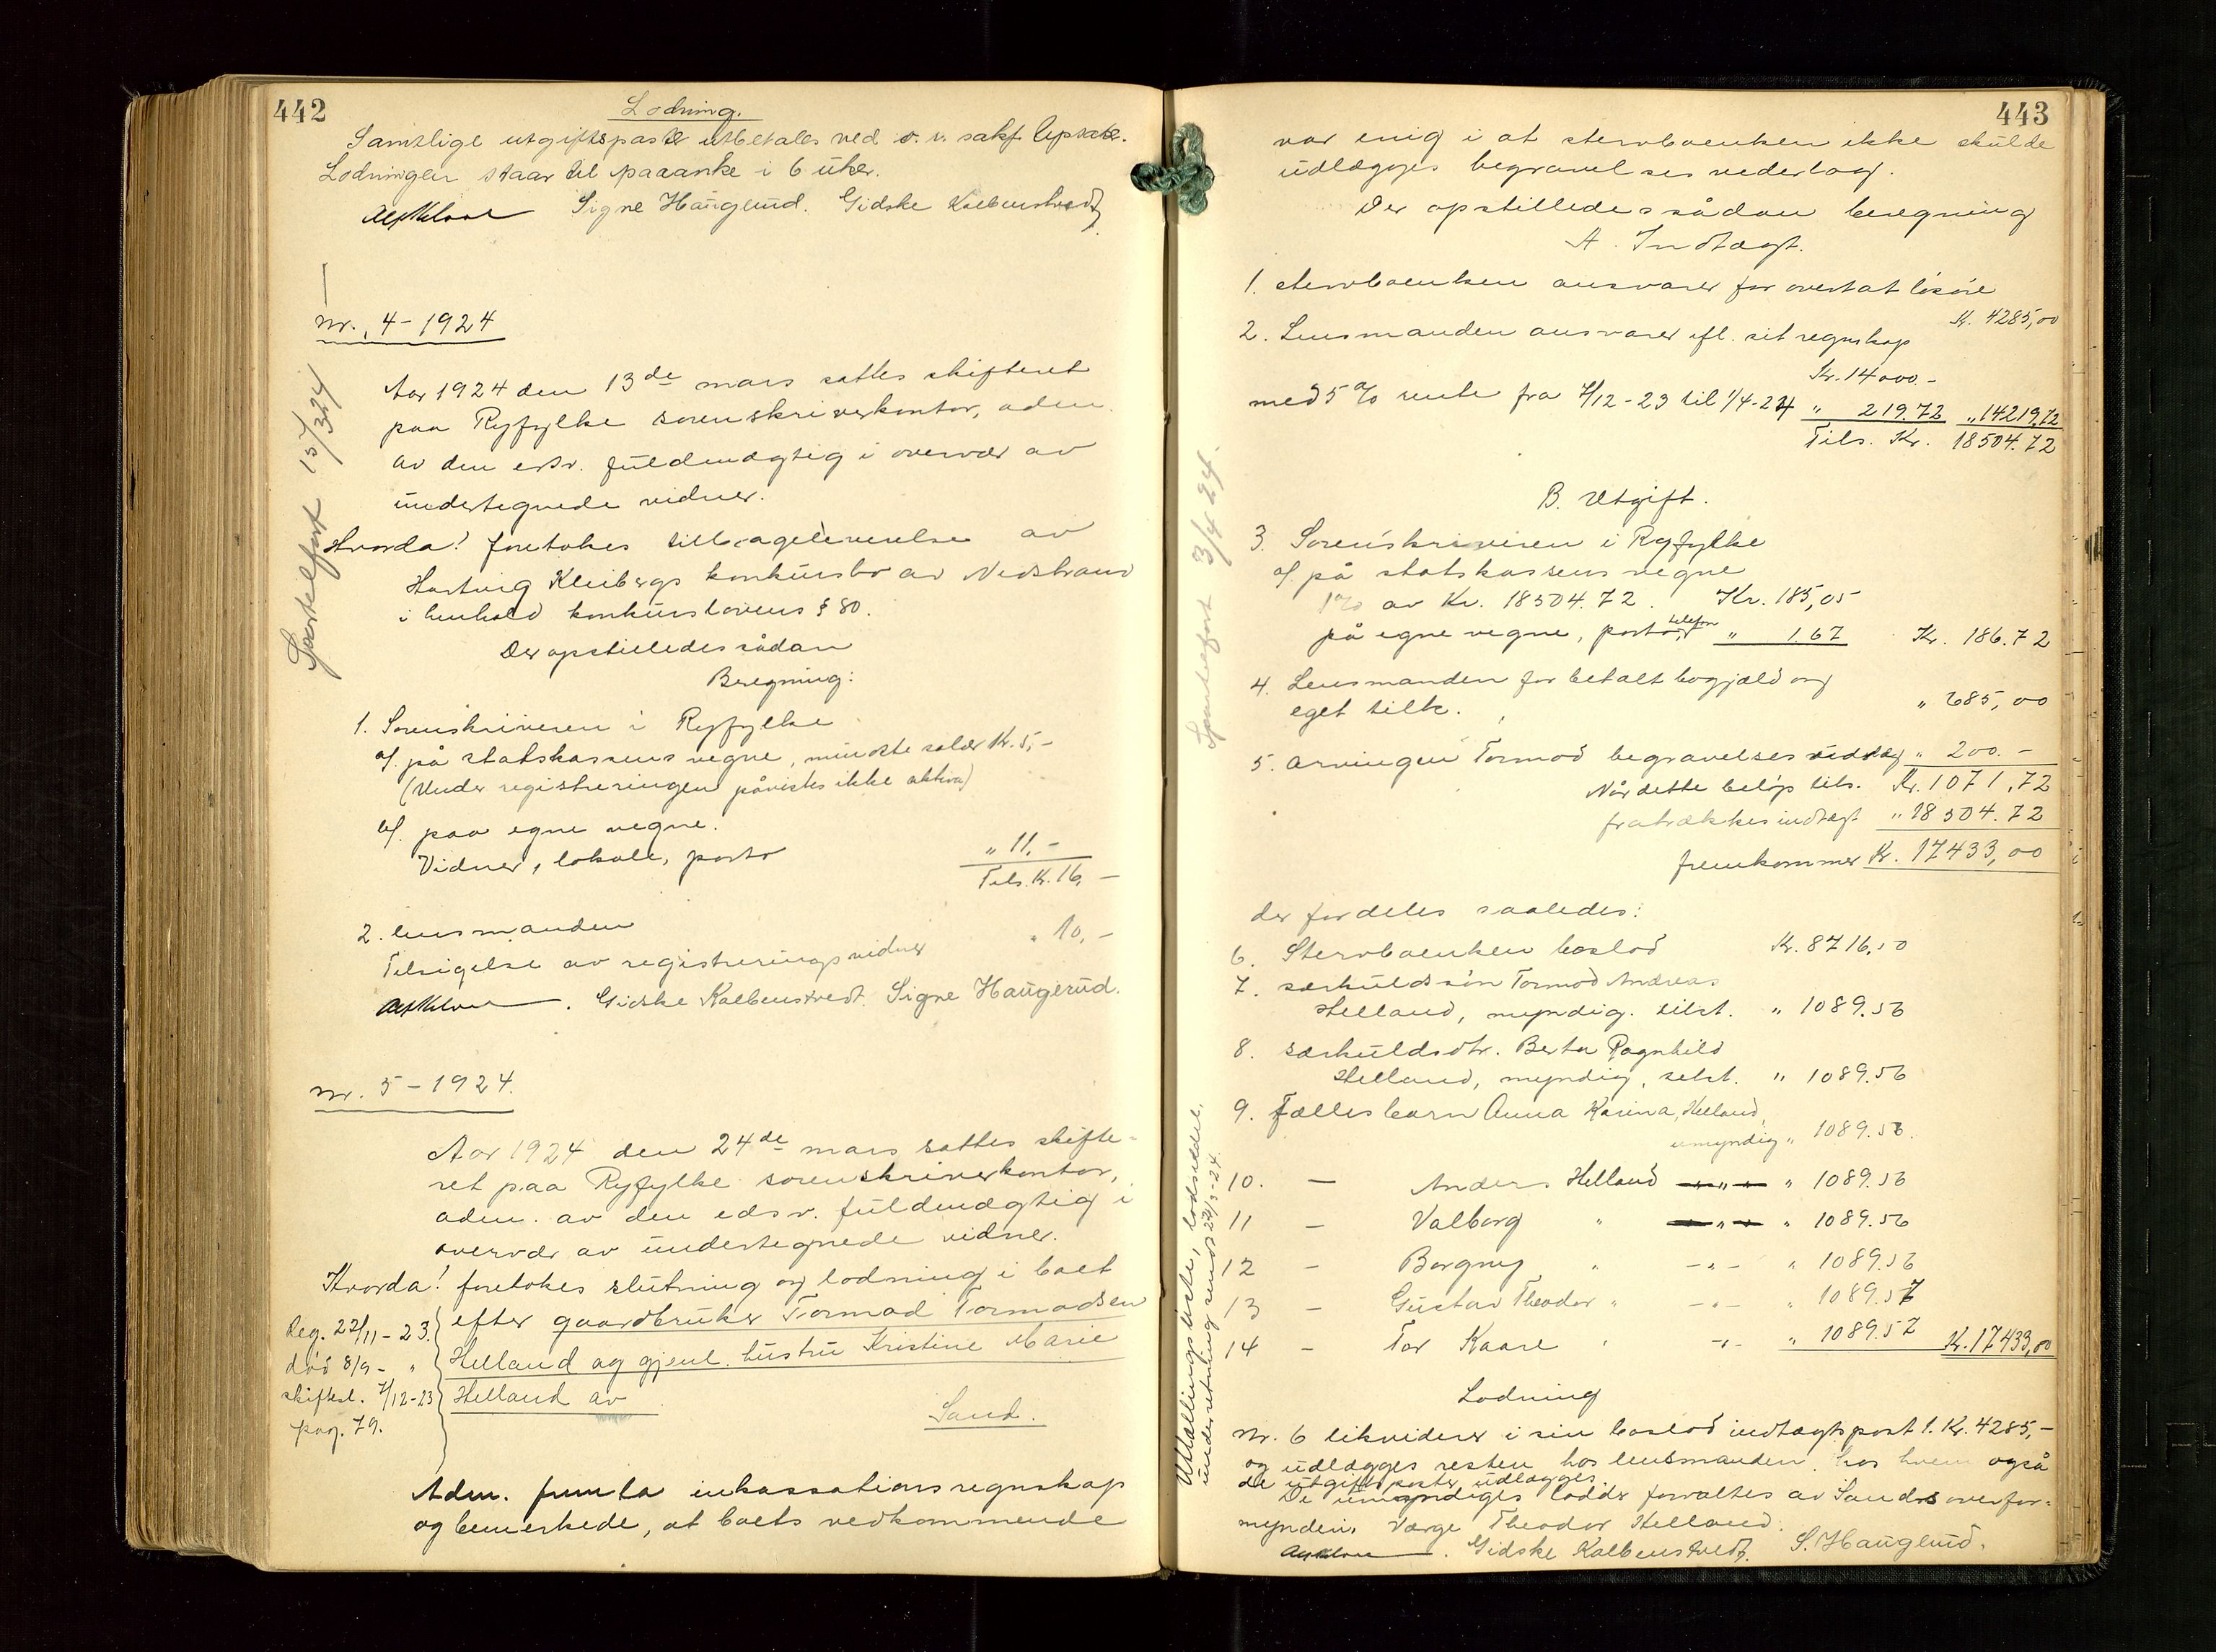 442
Lodning.
Samtlige utgiftsposter utbetales ved o. r. sakf.
Lodningen staar til paaanke i 6 uker.
Signe Haugerud. Gidske Kolbenstvedt
nr. 4 - 1924
Sportelfort 15/3 24
Aar 1924 den 13de mars sattes skifteret
paa Ryfylke sorenskriverkontor, adm.
av den edsv. fuldmægtig i overvær av
undertegnede vidner.
Hvorda! foretokes tilbageleverelse av
Hartvig Kleibergs konkursbo av Nedstrand
i henhold konkurslovens § 80.
Der opstilledes sådan
Beregning:
1. Sorenskriveren i Ryfylke
a/. på statskassens vegne, mindste salær Kr. 5,-
(Under registreringen påvistes ikke aktiva)
b/. paa egne vegne.
Vidner, lokale, porto " 11,-
Tils. Kr. 16,-
2. lensmanden
Tilsigelse av registreringsvidner " 10,-
Gidske Kolbenstvedt. Signe Haugerud.
nr. 5 - 1924.
Aar 1924 den 24de mars sattes skifte-
ret paa Ryfylke sorenskriverkontor,
adm. av den edsv. fuldmægtig i
overvær av undertegnede vidner.
Hvorda! foretokes slutning og lodning i boet
efter gaardbruker Tormod Tormodsen
Helland og gjenl. hustru Kristine Marie
Helland av
Sand.
Reg. 22/11 - 23.
død 8/9 - "
skiftesl. 7/12-23
pag. 79.
Adm. fremla inkassationsregnskap
og bemerkede, at boets vedkommende
443
var enig i at stervboenken ikke skulde
udlægges begravelsesvederlag.
Der opstilledes sådan beregning
A. Indtægt.
1. stervboenken ansvarer for overtat løsøre
Kr. 4285,00
2. Lensmanden ansvarer efl. sit regnskap
Kr. 14000.-
med 5% rente fra 7/12-23 til 1/4-24 " 219.72 " 14219,72
Tils. Kr. 18504.72
Sportelfort 3/4 24.
B. Utgift.
3. Sorenskriveren i Ryfylke
a/. på statskassens vegne
1% av Kr. 18504.72. Kr. 185,05
på egne vegne, porto, telefon " 1.67 Kr. 186.72
4. Lensmanden for betalt bogjæld og
eget tilk. " 685,00
5. arvingen Tormod begravelsesvederlag " 200.-
Når dette beløp tils. Kr. 1071.72
fratrækkes indtægt " 18504.72
fremkommer Kr. 17433,00
der fordeles saaledes:
6. Stervboenken boslod Kr. 8716,50
7. særkuldssøn Tormod Andreas
Helland, myndig. tilst. " 1089.56
8. særkuldsdtr. Berta Ragnhild
Helland, myndig, tilst. " 1089.56
9. Fællesbarn Anna Karina Helland,
umyndig " 1089.56.
10. — Anders Helland — " — " 1089.56
11 — Valborg " — " — " 1089.56
12 — Borgny " - " - " 1089.56
13 — Gustav Theodor " - " - " 1089.57
14 — Tor Kaare " - " - " 1089.57 Kr. 17433,00
Utfallingsliste, lodsedler,
underretning sendt 24/3-24.
Lodning
Nr. 6 likviderer i sin boslod indtægtspost 1. Kr. 4285,-
og udlægges resten hos lensmanden, hos hvem også
de utgiftsposter udlægges.
De umyndiges lodder forvaltes av Sands overfor-
mynderi. Værge Theodor Helland.
Gidske Kolbenstvedt. S. Haugerud.